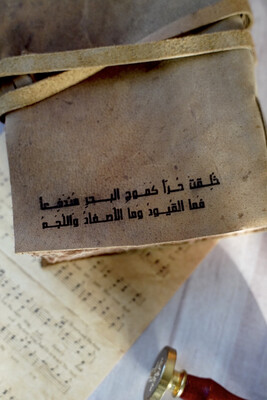 خُلقتَ حُرّاً كموجِ البحرِ مُندفِعاً
فما القيودُ وما الأصفادُ واللُجُمُ